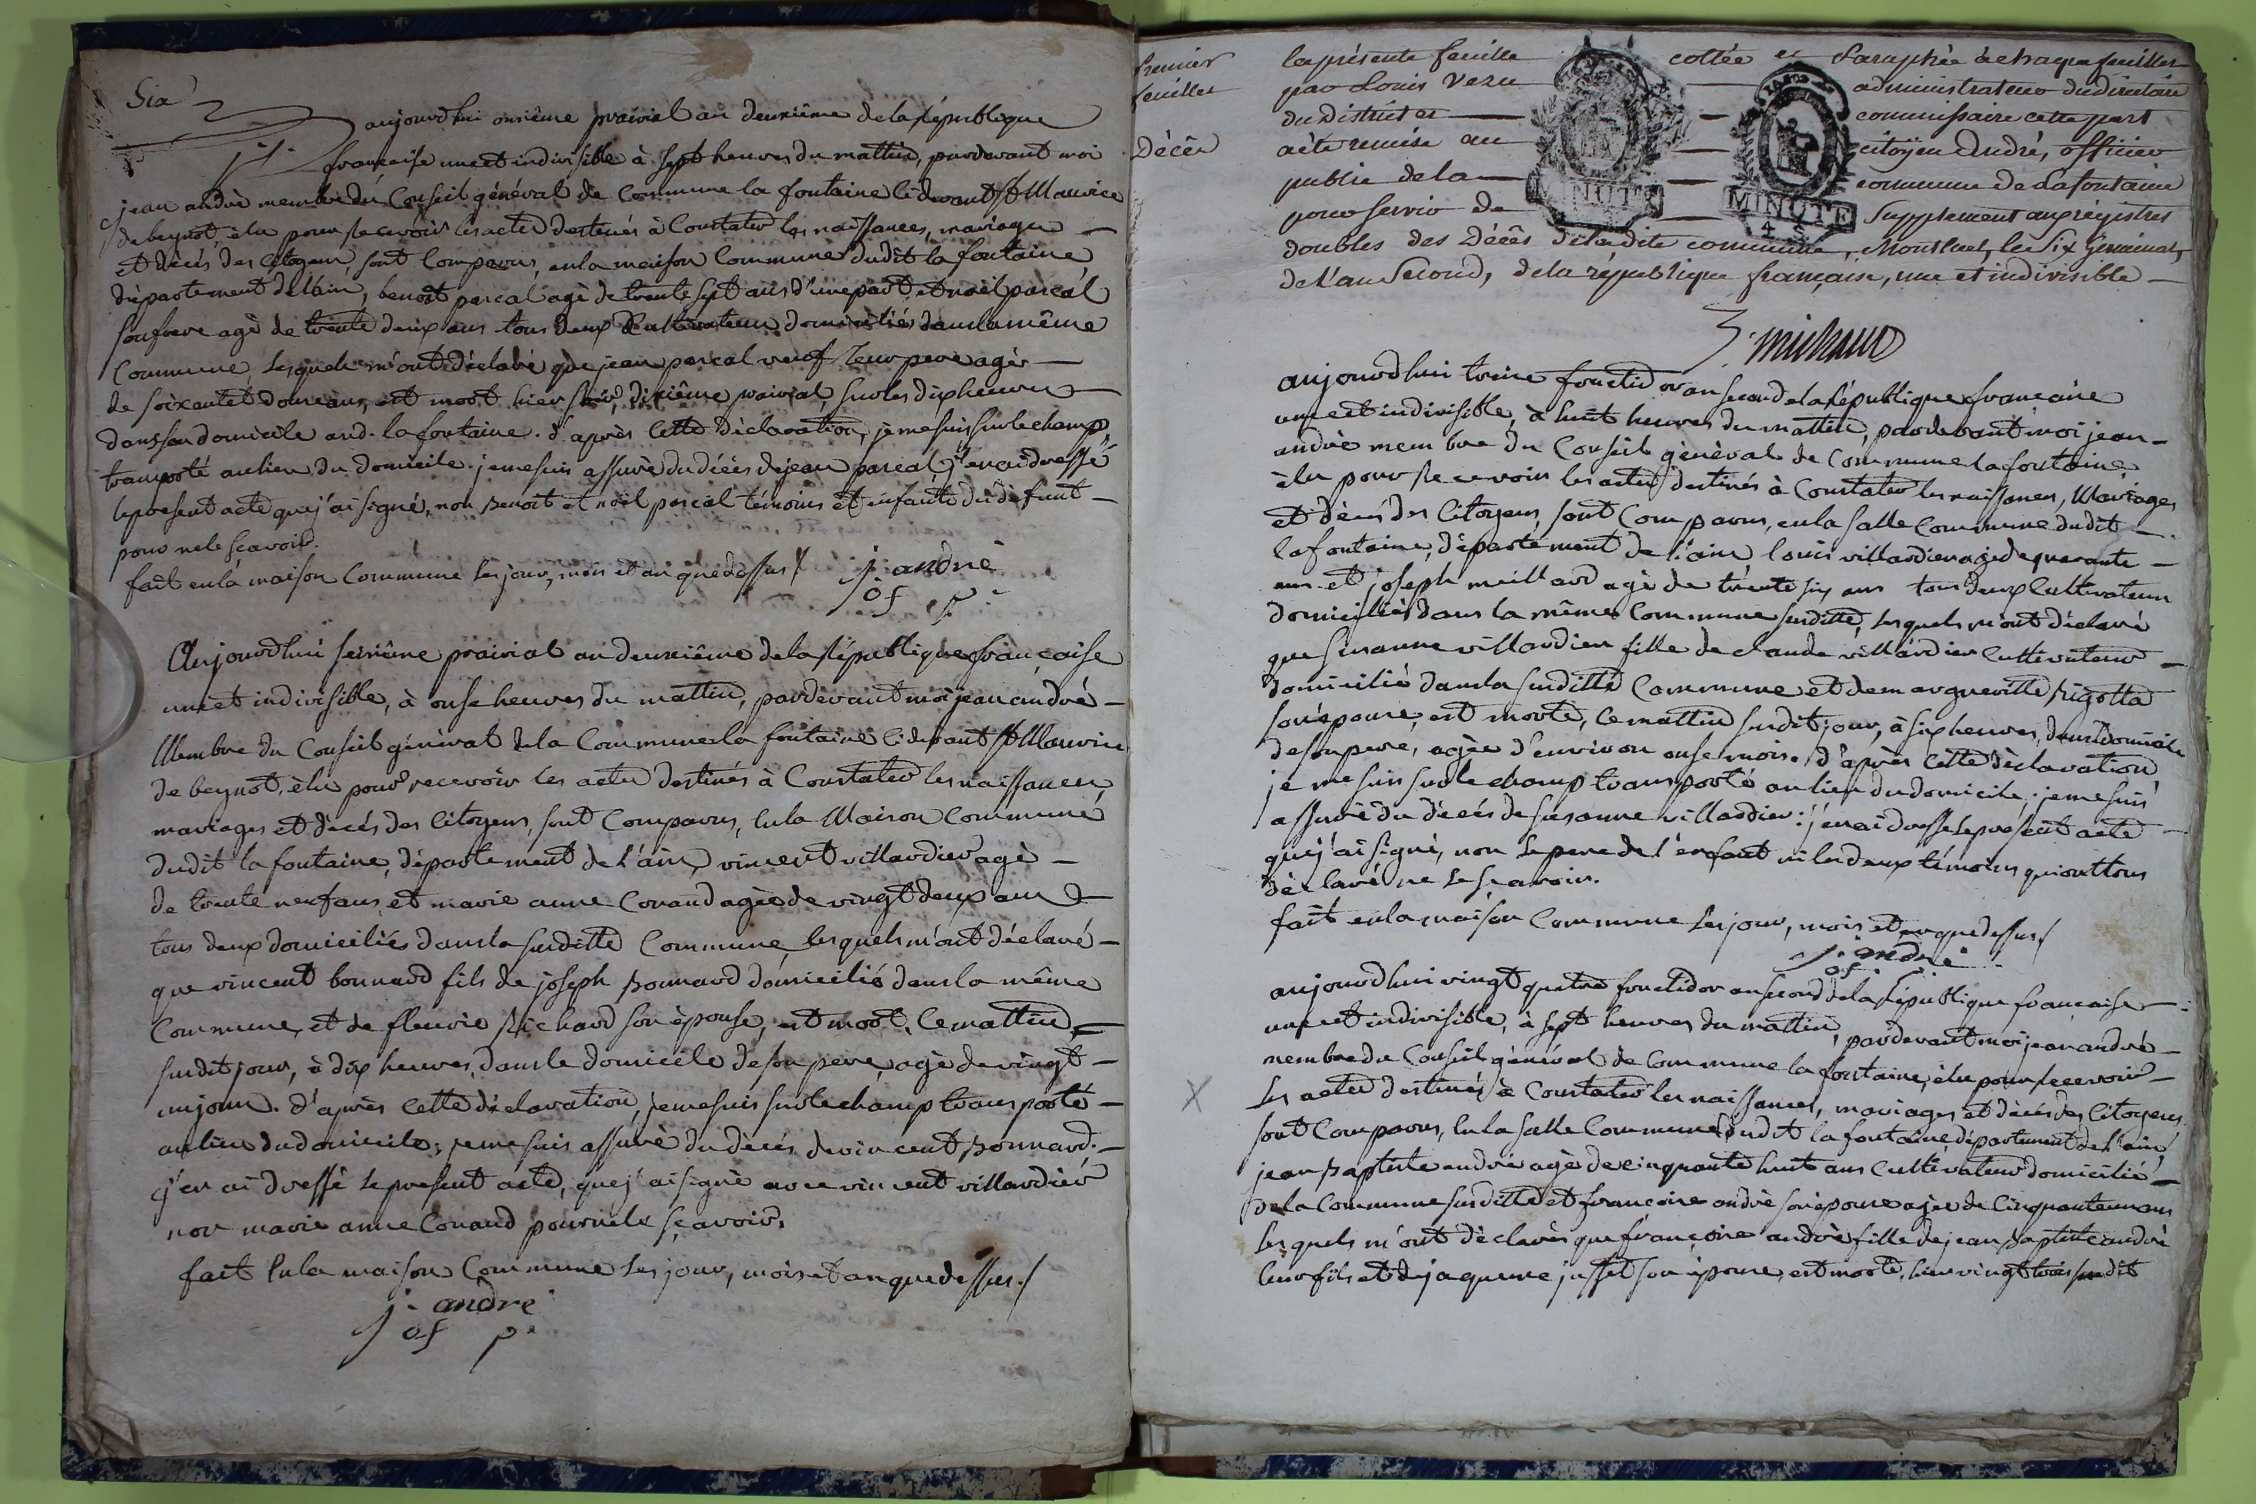 Six
aujourdhui onsiême prairial an deuxiême de la République
francaise une et indivisible à sept heures du mattin, pardevant moi
jean andrè membre du Conseil général de Commune la fontaine ci devant St Maurice
de beynot, èlu pour recevoir les actes destinés à Constater les naissances, mariages
et décés des Citoyens, sont Comparus, en la maison Commune dudit la fontaine
département de l'ain, benoit pascal agè de trente sept ans d'une part, et noël pascal
son frere agè de trente deux ans tous deux Cultivateurs domiciliés dans la même
Commune, lesquels m'ont déclaré que jean pascal veuf leur pere agés
de soixante et douze ans, est mort hier soir, dixiême prairial, sur les dix heures
dans son domicile aud. la fontaine. d'après Cette déclaration, je me suis sur le champ
transporté au lieu du domicile. je me suis assurè du décés de jean pascal j'en ai dressé
le present acte que j'ai signé, non benoit et noël pascal témoins et enfants du défunt
pour ne le sçavoir.
fait en la maison Commune les jour, mois et an que dessus
j. andrè
of p.
Aujourdhui seisiême prairial an deuxiême de la République francaise
une et indivisible, à onse heures du mattin, pardevant moi jean andrè
Membre du Conseil général de la Commune la fontaine Ci devant St Maurice
de beynot, èlu pour recevoir les actes destinés à Constater les naissances
mariages et décés des Citoyens, sont Comparus, en la Maison Commune
dudit la fontaine, département de l'ain, vincent villardier agè
de trente neuf ans, et marie anne Conand agée de vingt deux ans
tous deux domiciliés dans la susditte Commune, lesquels m'ont déclaré
que vincent bonnard fils de joseph bonnard domicilié dans la même
Commune, et de fleurie Richard son èpouse, est mort, Ce mattin
susdit jour, à dix heures, dans le domicile de son pere, agè de vingt
un jour. d'après Cette déclaration, je me suis sur le champ transporté
au lieu du domicile; je me suis assurè du décés de vincent bonnard.
j'en ai dressé le present acte, que j'ai signè avec vincent villardier
non marie anne Conand pour ne le sçavoir.
fait en la maison Commune les jour, mois et an que dessus
j. andre
of p.
Premier feuillet
la présente feuille cottée et Paraphée à chaque feuillet
par Louis administrateur du directoire
du district et commissaire cette part
Décès
a été remise au citoÿen André, officier
public de la commune de Lafontaine
pour servir de Supplement aux régistres
MINUTE
MINUTE
4. S
doubles des Décès de ladite commune, Montluel, le Six Germinal,
de l'an Second, de la république française, une et indivisible
aujourdhui treise fructidor an second de la République francaise
une et indivisible, à huit heures du mattin, pardevant moi jean
andrè membre du Conseil gènèral de Commune la fontaine,
èlu pour recevoir les actes destinés à Constater les naissances, Mariages
et décés des Citoyens, sont Comparus, en la salle Commune dudit
la fontaine, département de l'ain, louis villardier agè de quarante
ans et joseph meillard agè de trente six ans tous deux Cultivateurs
domiciliés dans la même Commune susditte, lesquels m'ont déclaré
que susanne villardier fille de claude villardier Cultivateur
domicilié dans la susditte Commune et de margueritte
son èpouse, est morte, Ce mattin susdit jour, à six heures, dans le domicile
de son pere, agèe d'environ onse mois. d'après Cette déclaration
je me suis sur le champ transporté au lieu du domicile; je me suis
assurè du décés de susanne villardier: j'en ai dressé le present acte
que j'ai signé, non le pere de l'enfant ni les deux témoins qui ont tous
déclaré ne le sçavoir.
fait en la maison Commune les jour, mois et an que dessus
j. andrè
of
aujourdhui vingt quatre fructidor an second de la République francaise
une et indivisible, à sept heures du mattin, pardevant moi jean andrè
membre du Conseil général de Commune la fontaine, èlu pour recevoir
les actes destinés à Constater les naissances, mariages et décés des Citoyens
sont Comparus, en la salle Commune dudit la fontaine département de l'ain,
jean baptiste andrè agè de cinquante huit ans Cultivateur domicilié
de la Commune susditte et francoise andrè son èpouse agèe de Cinquante un ans
lesquels m'ont déclarés que francoise andrè fille de jean baptiste andrè
leur fils et de jaqueme jusset son èpouse, est morte, hier vingt trois susdit